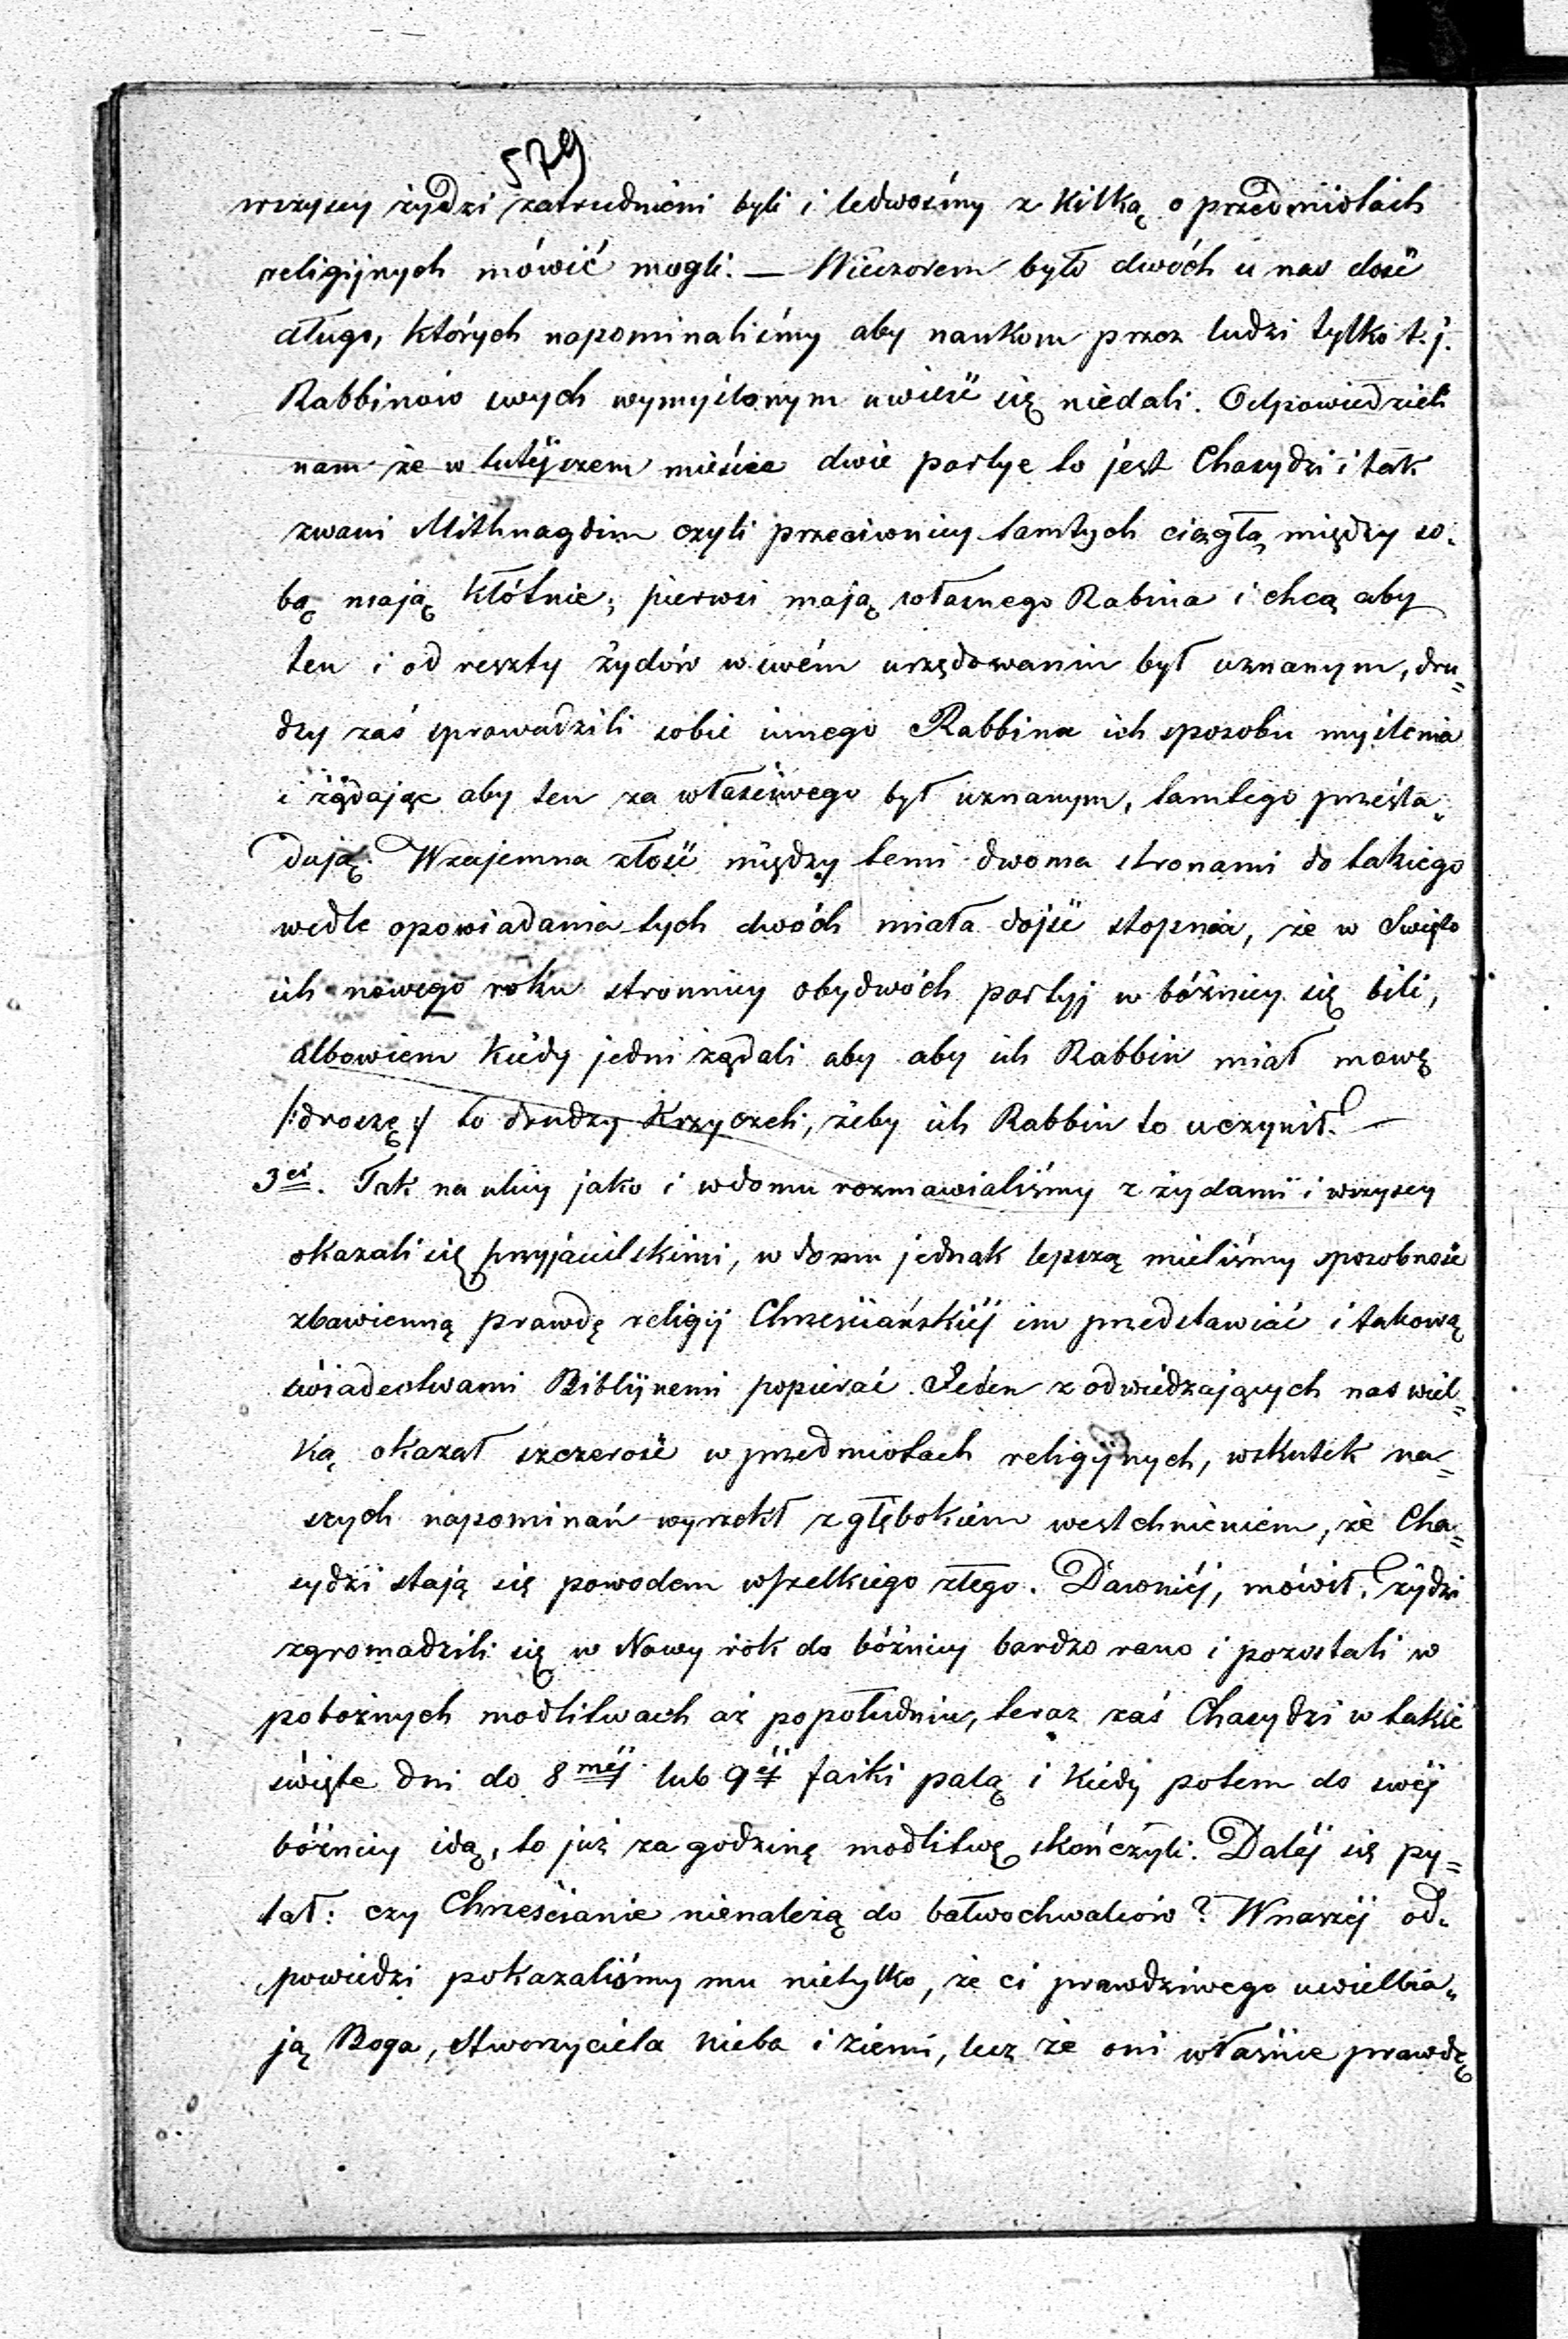 579
wszyscy żydzi zatrudnieni byli i ledwośmy z kilką o przedmiotach
religijnych mówić mogli. — Wieczorem było dwóch u nas dość
długo, których napominaliśmy aby naukom przez ludzi tylko t. j.
Rabbinów swych wymyślonym uwieść się niedali. Odpowiedzieli
nam że w tutéjszem mieście dwie partye to jest Chasydzi i tak
zwani Mithnagdim czyli przeciwnicy tamtych ciągłą między so-
bą mają kłótnie; pierwsi mają własnego Rabina i chcą aby
ten i od reszty żydów w swém urzędowaniu był uznanym, dru=
dzy zaś sprowadzili sobie innego Rabbina ich sposobu myślenia
i żądając aby ten za właściwego był uznanym, tamtego prześla-
dują. Wzajemna złość między temi dwoma stronami do takiego
wedle opowiadania tych dwóch miała dojść stopnia, że w Święto
ich nowego roku stronnicy obydwóch partyj w bóżnicy się bili,
albowiem kiedy jedni żądali aby aby ich Rabbin miał mowę
/:droszę:/ to drudzy krzyczeli, żeby ich Rabbin to uczynił. —
3ci. Tak na ulicy jako i w domu rozmawialiśmy z żydami i wszyscy
okazali się przyjacielskimi, w domu jednak lepszą mieliśmy sposobność
zbawienną prawdę religij Chrześciańskiéj im przedstawiać i takową
świadectwami Biblijnemi popierać. Jeden z odwiedzających nas wiel=
ką okazał szczerość w przedmiotach religijnych, wskutek na=
szych napominań wyrzekł z głębokiem westchnieniem, że Cha=
sydzi stają się powodem wszelkiego złego. Dawniéj, mówił, żydzi
zgromadzili się w Nowy rok do bóżnicy bardzo rano i pozostali w
pobożnych modlitwach aż popołudniu, teraz zaś Chasydzi w takie
święte dni do 8méj lub 9éj fajki palą i kiedy potem do swéj
bóżnicy idą, to już za godzinę modlitwę skończyli. Daléj się py=
tał: czy Chrześcianie nienależą do bałwochwalców? W naszéj od-
powiedzi pokazaliśmy mu nietylko, że ci prawdziwego uwielbia-
ją Boga, Stworzyciela nieba i ziemi, lecz że oni właśnie prawdę